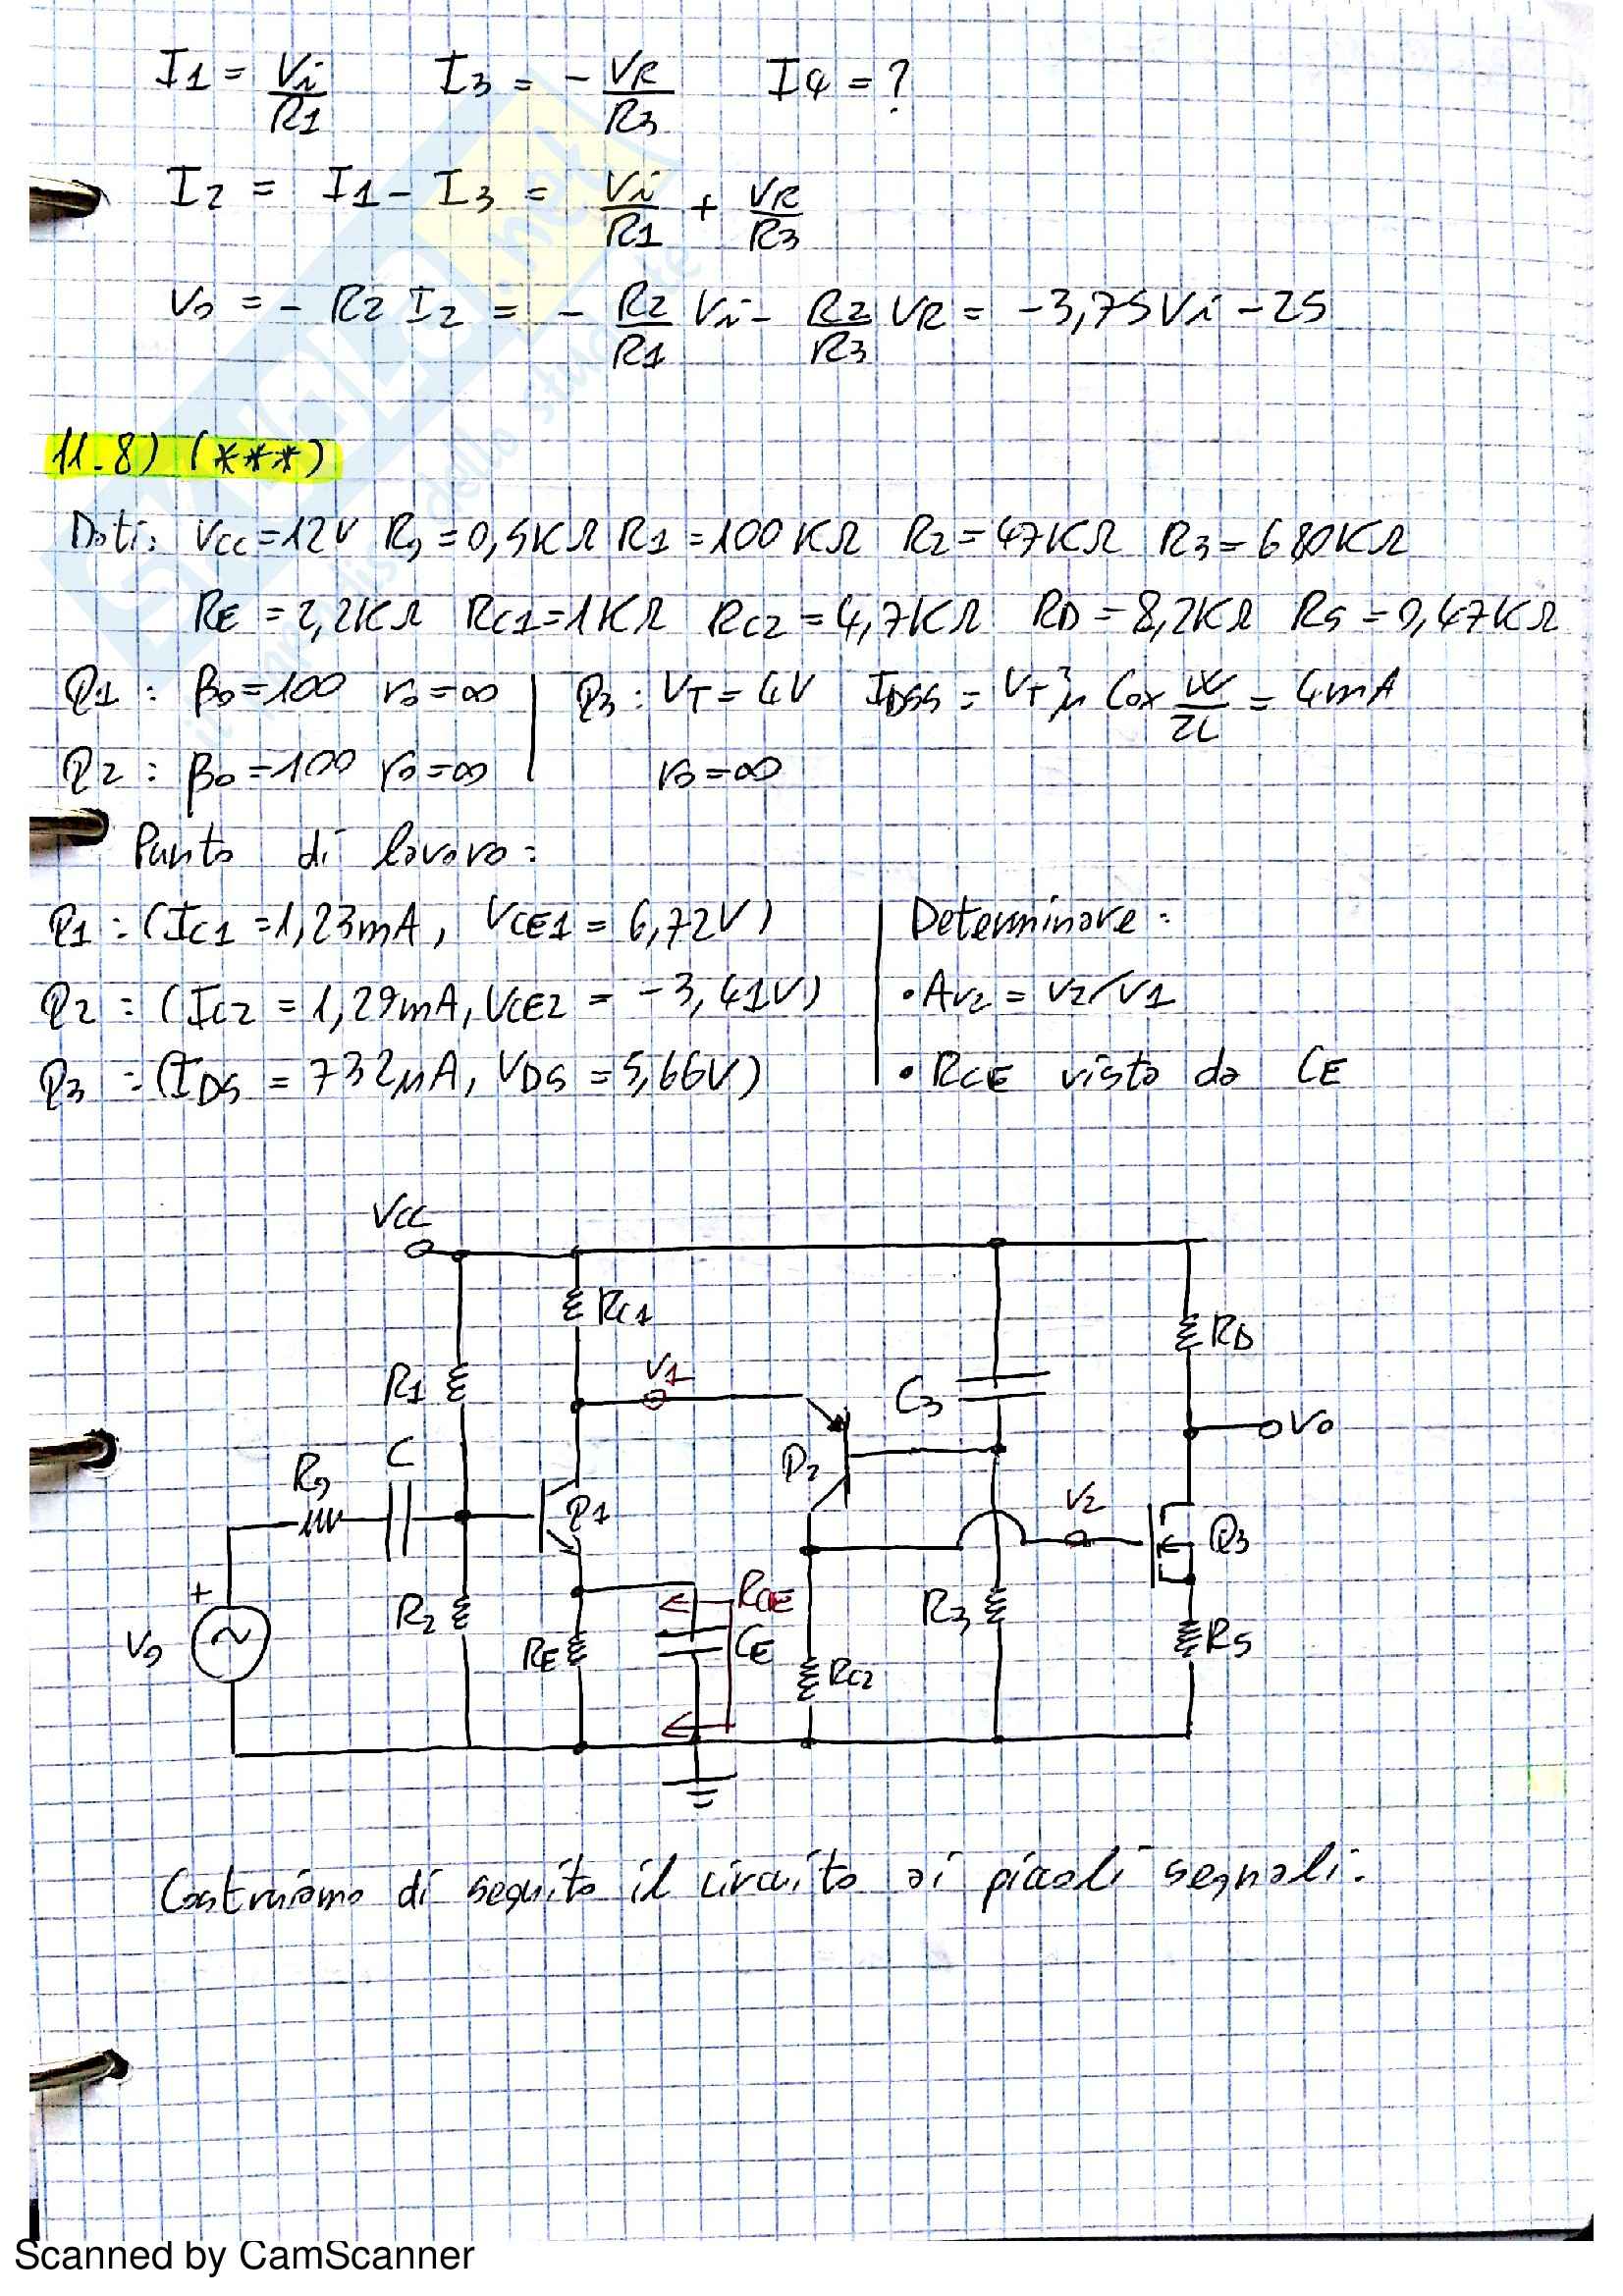 I1 = Vi/R1 I3 = - VR/R3 I4 = ?
I2 = I1 - I3 = Vi/R1 + VR/R3
Vo = - R2 I2 = - R2/R1 Vi - R2/R3 VR = -3,75Vi - 25
11.8) (***)
Dati: Vcc=12V Rs=0,5KΩ R1=100KΩ R2=47KΩ R3=680KΩ
RE=2,2KΩ RC1=1KΩ RC2=4,7KΩ RD=8,2KΩ RS=0,47KΩ
Q1: β0=100 r0=∞ | Q3: VT=4V IDSS = VT² μ Cox W/2L = 4mA
Q2: β0=100 r0=∞ | r0=∞
Punto di lavoro:
Q1: (IC1=1,23mA, VCE1=6,72V) | Determinare:
Q2: (IC2=1,29mA, VCE2=-3,41V) | • Av2=V2/V1
Q3: (IDS=732μA, VDS=5,66V) | • RCE visto da CE
Vcc
RC1
RD
V1
R1
C3
Vo
C
Q2
Rs
V2
Q1
Q3
+
RCE
R2
R3
Vs
RE
CE
RS
RC2
Costruiamo di seguito il circuito ai piccoli segnali:
Scanned by CamScanner